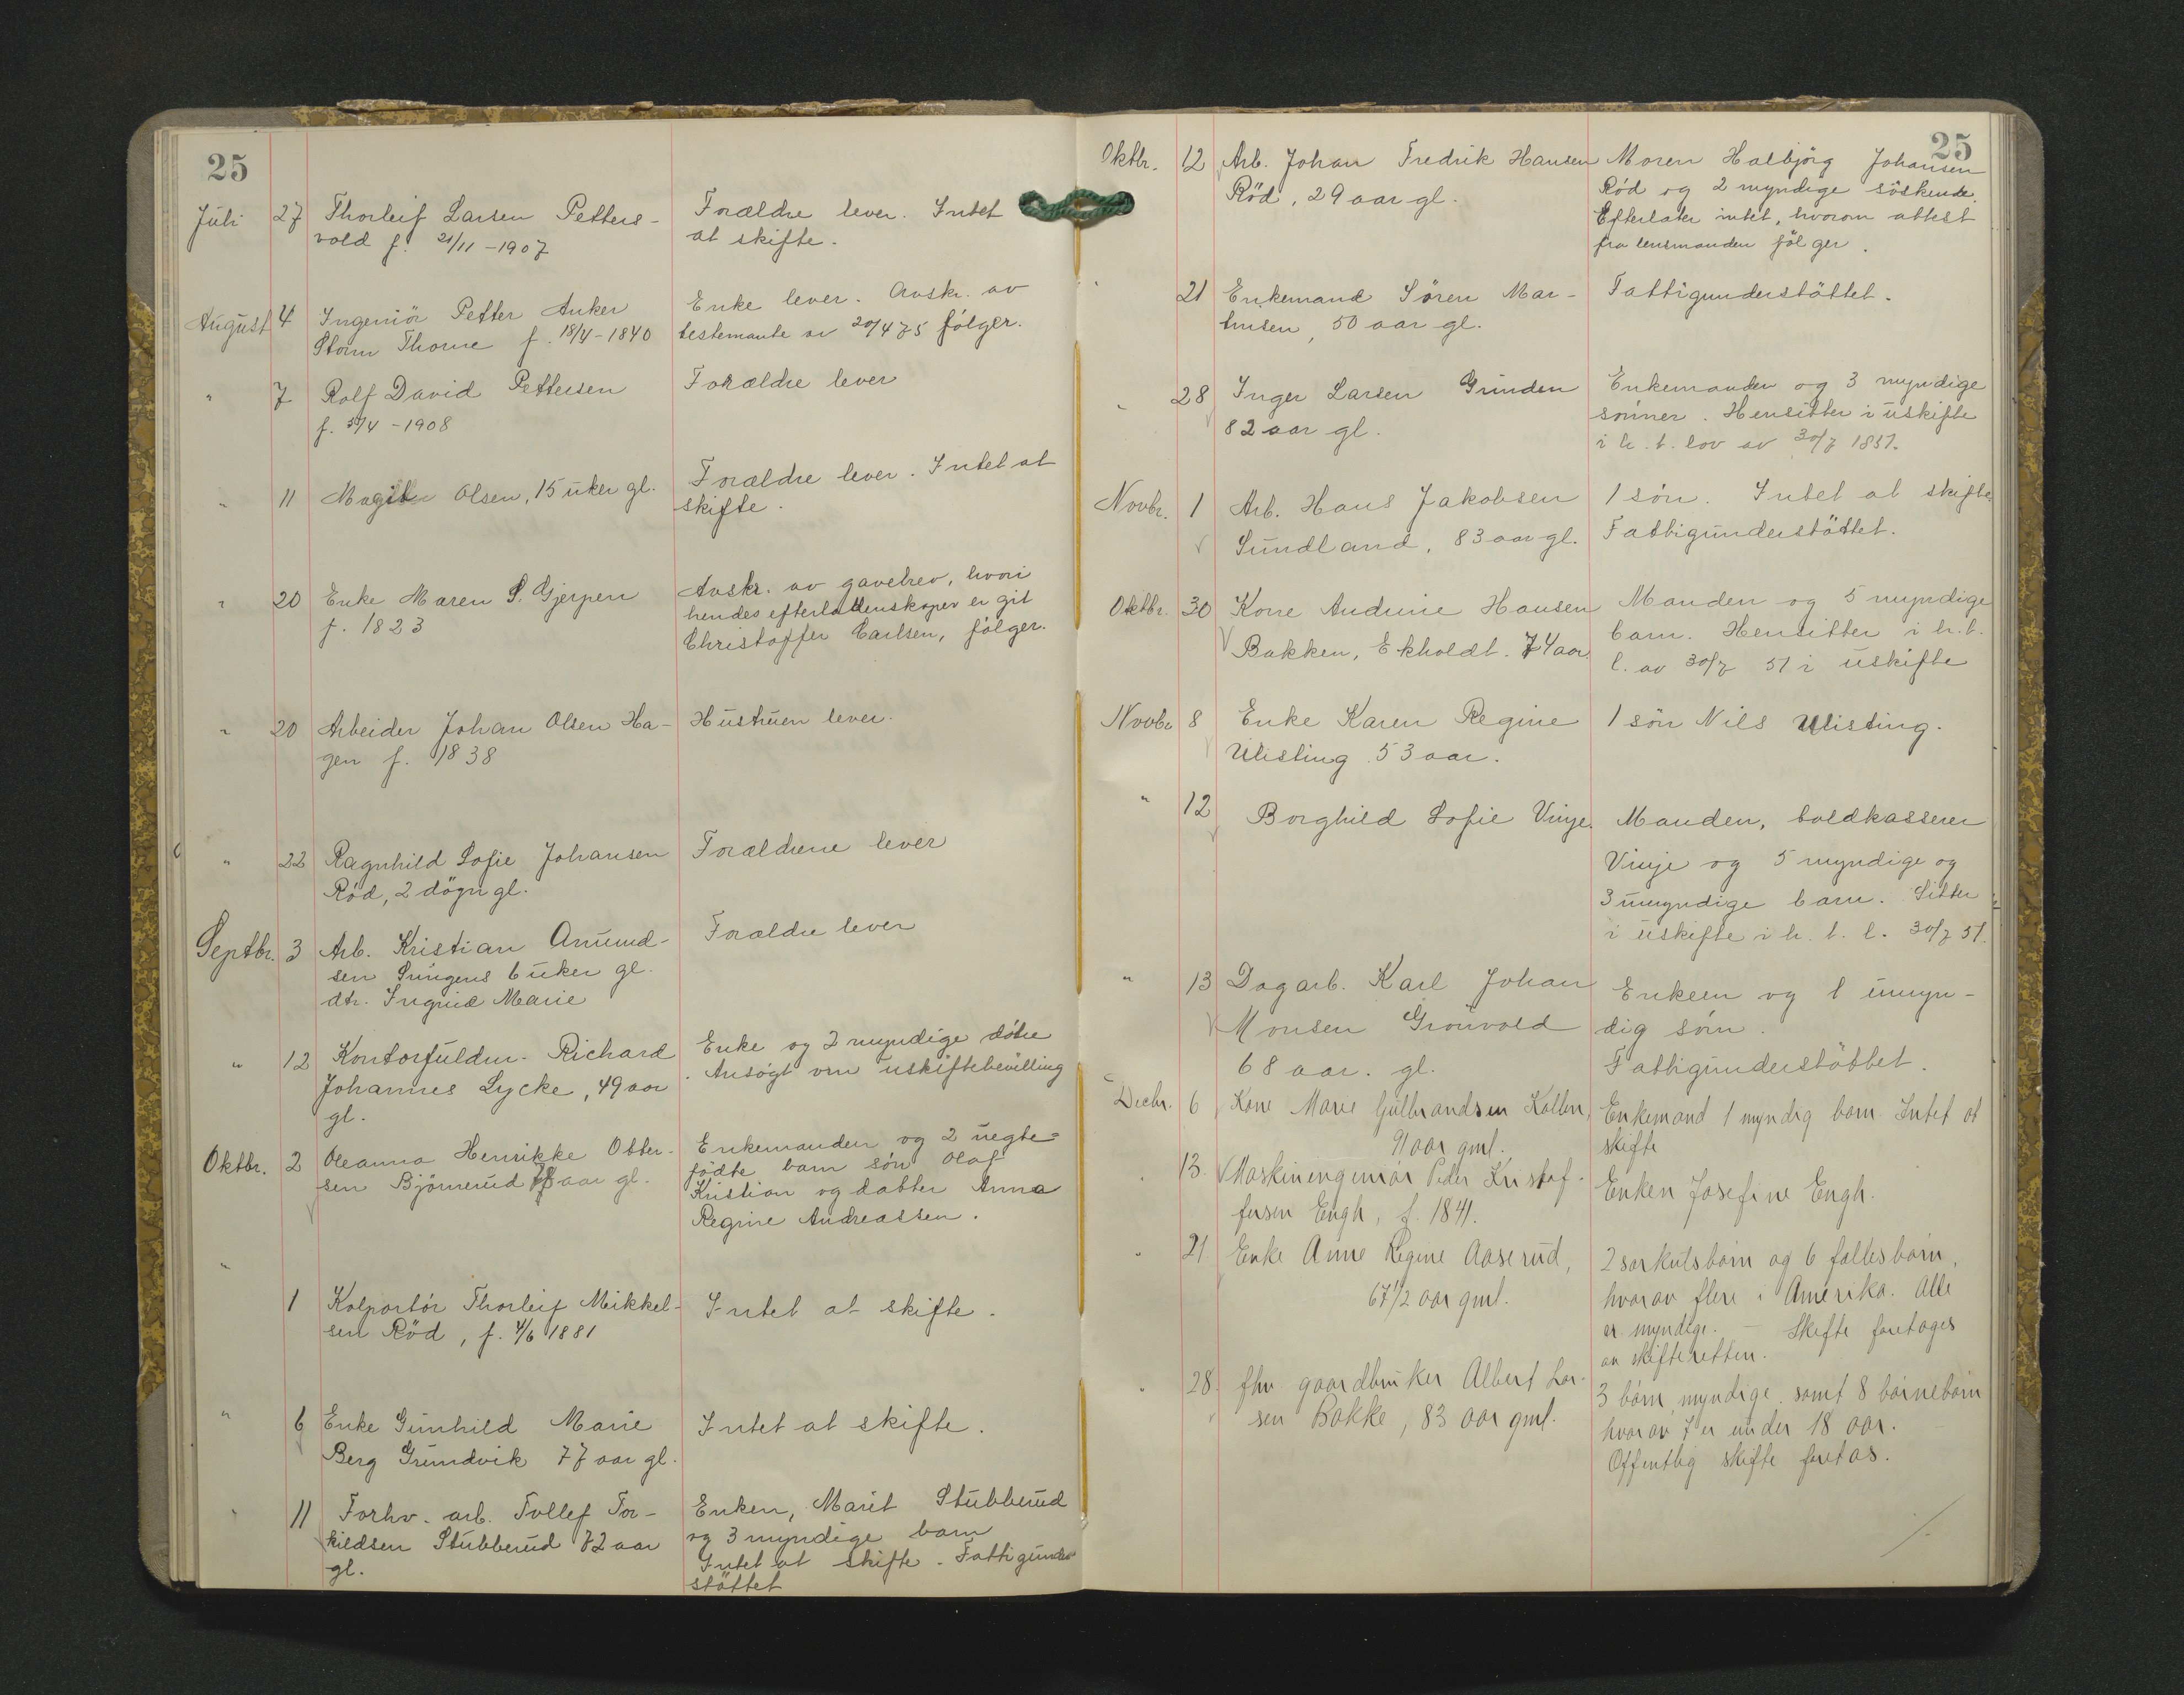 25
Juli 27 Thorleif Larsen Petters- Forældre lever. Intet
vold f. 21/11-1907 at skifte.
August 4 Ingeniör Petter Anker Enke lever. Avskr. av
Storm Thorne f. 18/4-1840 testemante av 20/4 75 følger.
" 7 Rolf David Pettersen Forældre lever
f. -1908
" 11 Olsen, 15 uker gl. Forældre lever. Intet at
skifte.
" 20 Enke Maren S. Gjerpen Avskr. av gavebrev, hvori
f. 1823 hendes efterlattenskaper er git
Christoffer Carlsen, følger.
" 20 Arbeider Johan Olsen Ha- Hustruen lever.
gen f. 1838
" 22 Ragnhild Sofie Johansen Forældrene lever
Röd, 2 dögn gl.
Septbr. 3 Arb. Kristian Amund- Forældre lever
sen 6 uker gl.
dtr. Ingrid Marie
" 12 Kontorfuldm. Richard Enke og 2 myndige dötre
Johannes Lycke, 49 aar . Ansögt om uskiftebevilling
gl.
Oktbr. 2 Oleanna Henrikke Otter- Enkemanden og 2 uegte=
sen Björnerud aar gl. födte barn sön Olaf
Kristian og datter Anna
Regine Andreassen.
"
1 Kolportör Thorleif Mikkel- Intet at skifte.
sen Röd, f. 4/6 1881
" 6 Enke Gunhild Marie Intet at skifte.
Berg Grundvik 77 aar gl.
" 11 Forhv. arb. Tollef Tor- Enken, Marit Stubberud
kildsen Stubberud 72 aar og 3 myndige barn
gl. Intet at skifte. Fattigunder
stöttet
25
Oktbr. 12 Arb. Johan Fredrik Hansen Moren Halbjörg Johansen
Röd, 29 aar gl. Röd og 2 myndige söskende.
Efterlater intet, hvorom attest
fra lensmanden fölger.
" 21 Enkemand Sören Mar- Fattigunderstöttet.
tinsen, 50 aar gl.
" 28 Inger Larsen Grinden Enkemanden og 3 myndige
82 aar gl. sönner. Hensitter i uskifte
i h. t. lov av 30/7 1851.
Novbr. 1 Arb. Hans Jakobsen 1 sön. Intet at skifte.
Sundland, 83 aar gl. Fattigunderstöttet.
Oktbr. 30 Kone Andrine Hansen Manden og 5 myndige
Bakken, Ekholdt. 74 aar. barn. Hensitter i h.t.
l. av 30/7 51 i uskifte
Novbr 8 Enke Karen Regine 1 sön Nils Ulisting.
Ulisting 53 aar.
" 12 Borghild Sofie Vinje. Manden, toldkasserer
Vinje og 5 myndige og
3 umyndige barn. Sitter
i uskifte i h. t. l. 30/7 51.
" 13 Dagarb. Karl Johan Enken og 1 umyn-
Monsen Grönvold dig sön.
68 aar. gl. Fattigunderstöttet.
Decbr. 6 Kone Marie Gulbrandsen Kolbu, Enkemand 1 myndig barn. Intet at
91 aar gml. skifte
" 13. Maskiningeniör Peder Kristof- Enken Josefine Engh.
fersen Engh, f. 1841.
" 21 Enke Anne Regine Aaserud, 2 særkulsbarn og 6 fællesbarn,
67 1/2 aar gml. hvorav flere i Amerika. Alle
er myndige. — Skifte foretages
av skifteretten.
" 28. fhv gaardbruker Albert Lar- 3 barn, myndige, samt 8 barnebarn
sen Bakke, 83 aar gml. hvorav 7 er under 18 aar.
Offentlig skifte foretas.